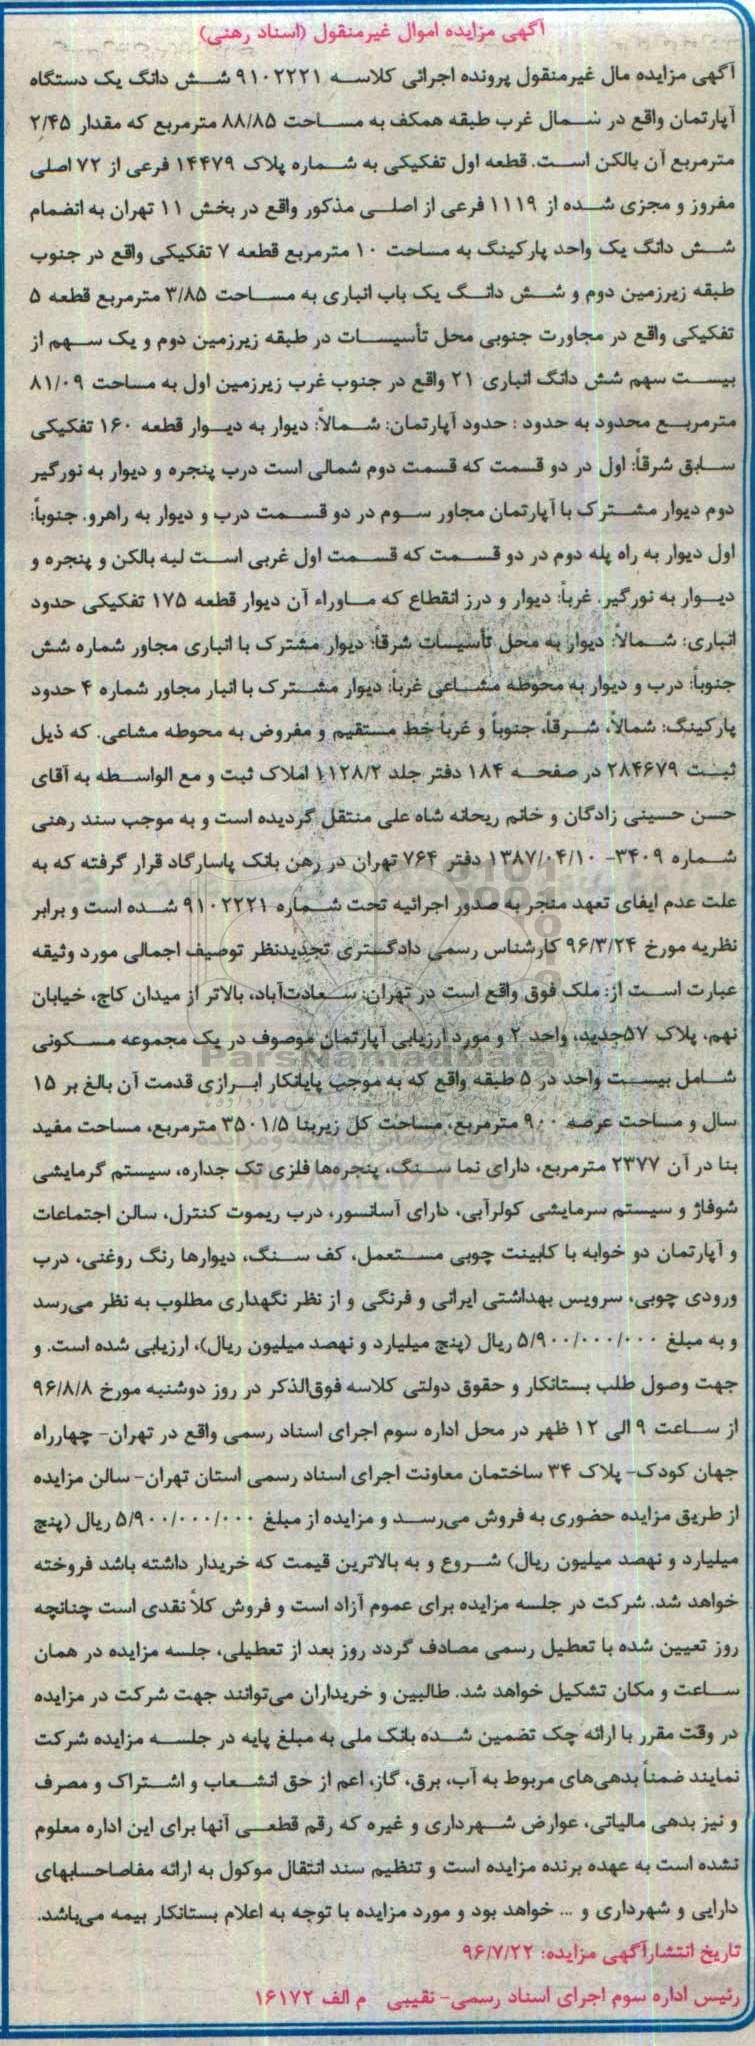 آگهی مزایده اموال غیرمنقول (اسناد رهنی)
آگهی مزایده مال غیرمنقول پرونده اجرائی کلاسه ۹۱۰۲۲۲۱ شش دانگ یک دستگاه
آپارتمان واقع در شمال غرب طبقه همکف به مساحت ۸۸/۸۵ مترمربع که مقدار ۲/۴۵
مترمربع آن بالکن است. قطعه اول تفکیکی به شماره پلاک ۱۴۴۷۹ فرعی از ۷۲ اصلی
مفروز و مجزی شده از ۱۱۱۹ فرعی از اصلی مذکور واقع در بخش ۱۱ تهران به انضمام
شش دانگ یک واحد پارکینگ به مساحت ۱۰ مترمربع قطعه ۷ تفکیکی واقع در جنوب
طبقه زیرزمین دوم و شش دانگ یک باب انباری به مساحت ۳/۸۵ مترمربع قطعه ۵
تفکیکی واقع در مجاورت جنوبی محل تأسیسات در طبقه زیرزمین دوم و یک سهم از
بیست سهم شش دانگ انباری ۲۱ واقع در جنوب غرب زیرزمین اول به مساحت ۸۱/۰۹
مترمربع محدود به حدود : حدود آپارتمان: شمالاً: دیوار به دیوار قطعه ۱۶۰ تفکیکی
سابق شرقاً: اول در دو قسمت که قسمت دوم شمالی است درب پنجره و دیوار به نورگیر
دوم دیوار مشترک با آپارتمان مجاور سوم در دو قسمت درب و دیوار به راهرو. جنوباً:
اول دیوار به راه پله دوم در دو قسمت که قسمت اول غربی است لبه بالکن و پنجره و
دیوار به نورگیر. غرباً: دیوار و درز انقطاع که ماوراء آن دیوار قطعه ۱۷۵ تفکیکی حدود
انباری: شمالاً: دیوار به محل تأسیسات شرقاً: دیوار مشترک با انباری مجاور شماره شش
جنوباً: درب و دیوار به محوطه مشاعی غرباً: دیوار مشترک با انبار مجاور شماره ۴ حدود
پارکینگ: شمالاً، شرقاً، جنوباً و غرباً خط مستقیم و مفروض به محوطه مشاعی. که ذیل
ثبت ۲۸۴۶۷۹ در صفحه ۱۸۴ دفتر جلد ۱۱۲۸/۲ املاک ثبت و مع الواسطه به آقای
حسن حسینی زادگان و خانم ریحانه شاه علی منتقل گردیده است و به موجب سند رهنی
شماره ۳۴۰۹- ۱۳۸۷/۰۴/۱۰ دفتر ۷۶۴ تهران در رهن بانک پاسارگاد قرار گرفته که به
علت عدم ایفای تعهد منجر به صدور اجرائیه تحت شماره ۹۱۰۲۲۲۱ شده است و برابر
نظریه مورخ ۹۶/۳/۲۴ کارشناس رسمی دادگستری تجدیدنظر توصیف اجمالی مورد وثیقه
عبارت است از: ملک فوق واقع است در تهران، سعادت‌آباد، بالاتر از میدان کاج، خیابان
نهم، پلاک ۵۷جدید، واحد ۲ و مورد ارزیابی آپارتمان موصوف در یک مجموعه مسکونی
ParsNamadData
شامل بیست واحد در ۵ طبقه واقع که به موجب پایانکار ابرازی قدمت آن بالغ بر ۱۵
سال و مساحت عرصه ۹۰۰ مترمربع، مساحت کل زیربنا ۳۵۰۱/۵ مترمربع، مساحت مفید
بنا در آن ۲۳۷۷ مترمربع، دارای نما سنگ، پنجره‌ها فلزی تک جداره، سیستم گرمایشی
شوفاژ و سیستم سرمایشی کولرآبی، دارای آسانسور، درب ریموت کنترل، سالن اجتماعات
و آپارتمان دو خوابه با کابینت چوبی مستعمل، کف سنگ، دیوارها رنگ روغنی، درب
ورودی چوبی، سرویس بهداشتی ایرانی و فرنگی و از نظر نگهداری مطلوب به نظر می‌رسد
و به مبلغ ۵/۹۰۰/۰۰۰/۰۰۰ ریال (پنج میلیارد و نهصد میلیون ریال)، ارزیابی شده است. و
جهت وصول طلب بستانکار و حقوق دولتی کلاسه فوق‌الذکر در روز دوشنبه مورخ ۹۶/۸/۸
از ساعت ۹ الی ۱۲ ظهر در محل اداره سوم اجرای اسناد رسمی واقع در تهران- چهارراه
جهان کودک- پلاک ۳۴ ساختمان معاونت اجرای اسناد رسمی استان تهران- سالن مزایده
از طریق مزایده حضوری به فروش می‌رسد و مزایده از مبلغ ۵/۹۰۰/۰۰۰/۰۰۰ ریال (پنج
میلیارد و نهصد میلیون ریال) شروع و به بالاترین قیمت که خریدار داشته باشد فروخته
خواهد شد. شرکت در جلسه مزایده برای عموم آزاد است و فروش کلاً نقدی است چنانچه
روز تعیین شده با تعطیل رسمی مصادف گردد روز بعد از تعطیلی، جلسه مزایده در همان
ساعت و مکان تشکیل خواهد شد. طالبین و خریداران می‌توانند جهت شرکت در مزایده
در وقت مقرر با ارائه چک تضمین شده بانک ملی به مبلغ پایه در جلسه مزایده شرکت
نمایند ضمناً بدهی‌های مربوط به آب، برق، گاز، اعم از حق انشعاب و اشتراک و مصرف
و نیز بدهی مالیاتی، عوارض شهرداری و غیره که رقم قطعی آنها برای این اداره معلوم
نشده است به عهده برنده مزایده است و تنظیم سند انتقال موکول به ارائه مفاصاحسابهای
دارایی و شهرداری و ... خواهد بود و مورد مزایده با توجه به اعلام بستانکار بیمه می‌باشد.
تاریخ انتشارآگهی مزایده: ۹۶/۷/۲۲
رئیس اداره سوم اجرای اسناد رسمی- نقیبی م الف ۱۶۱۷۲